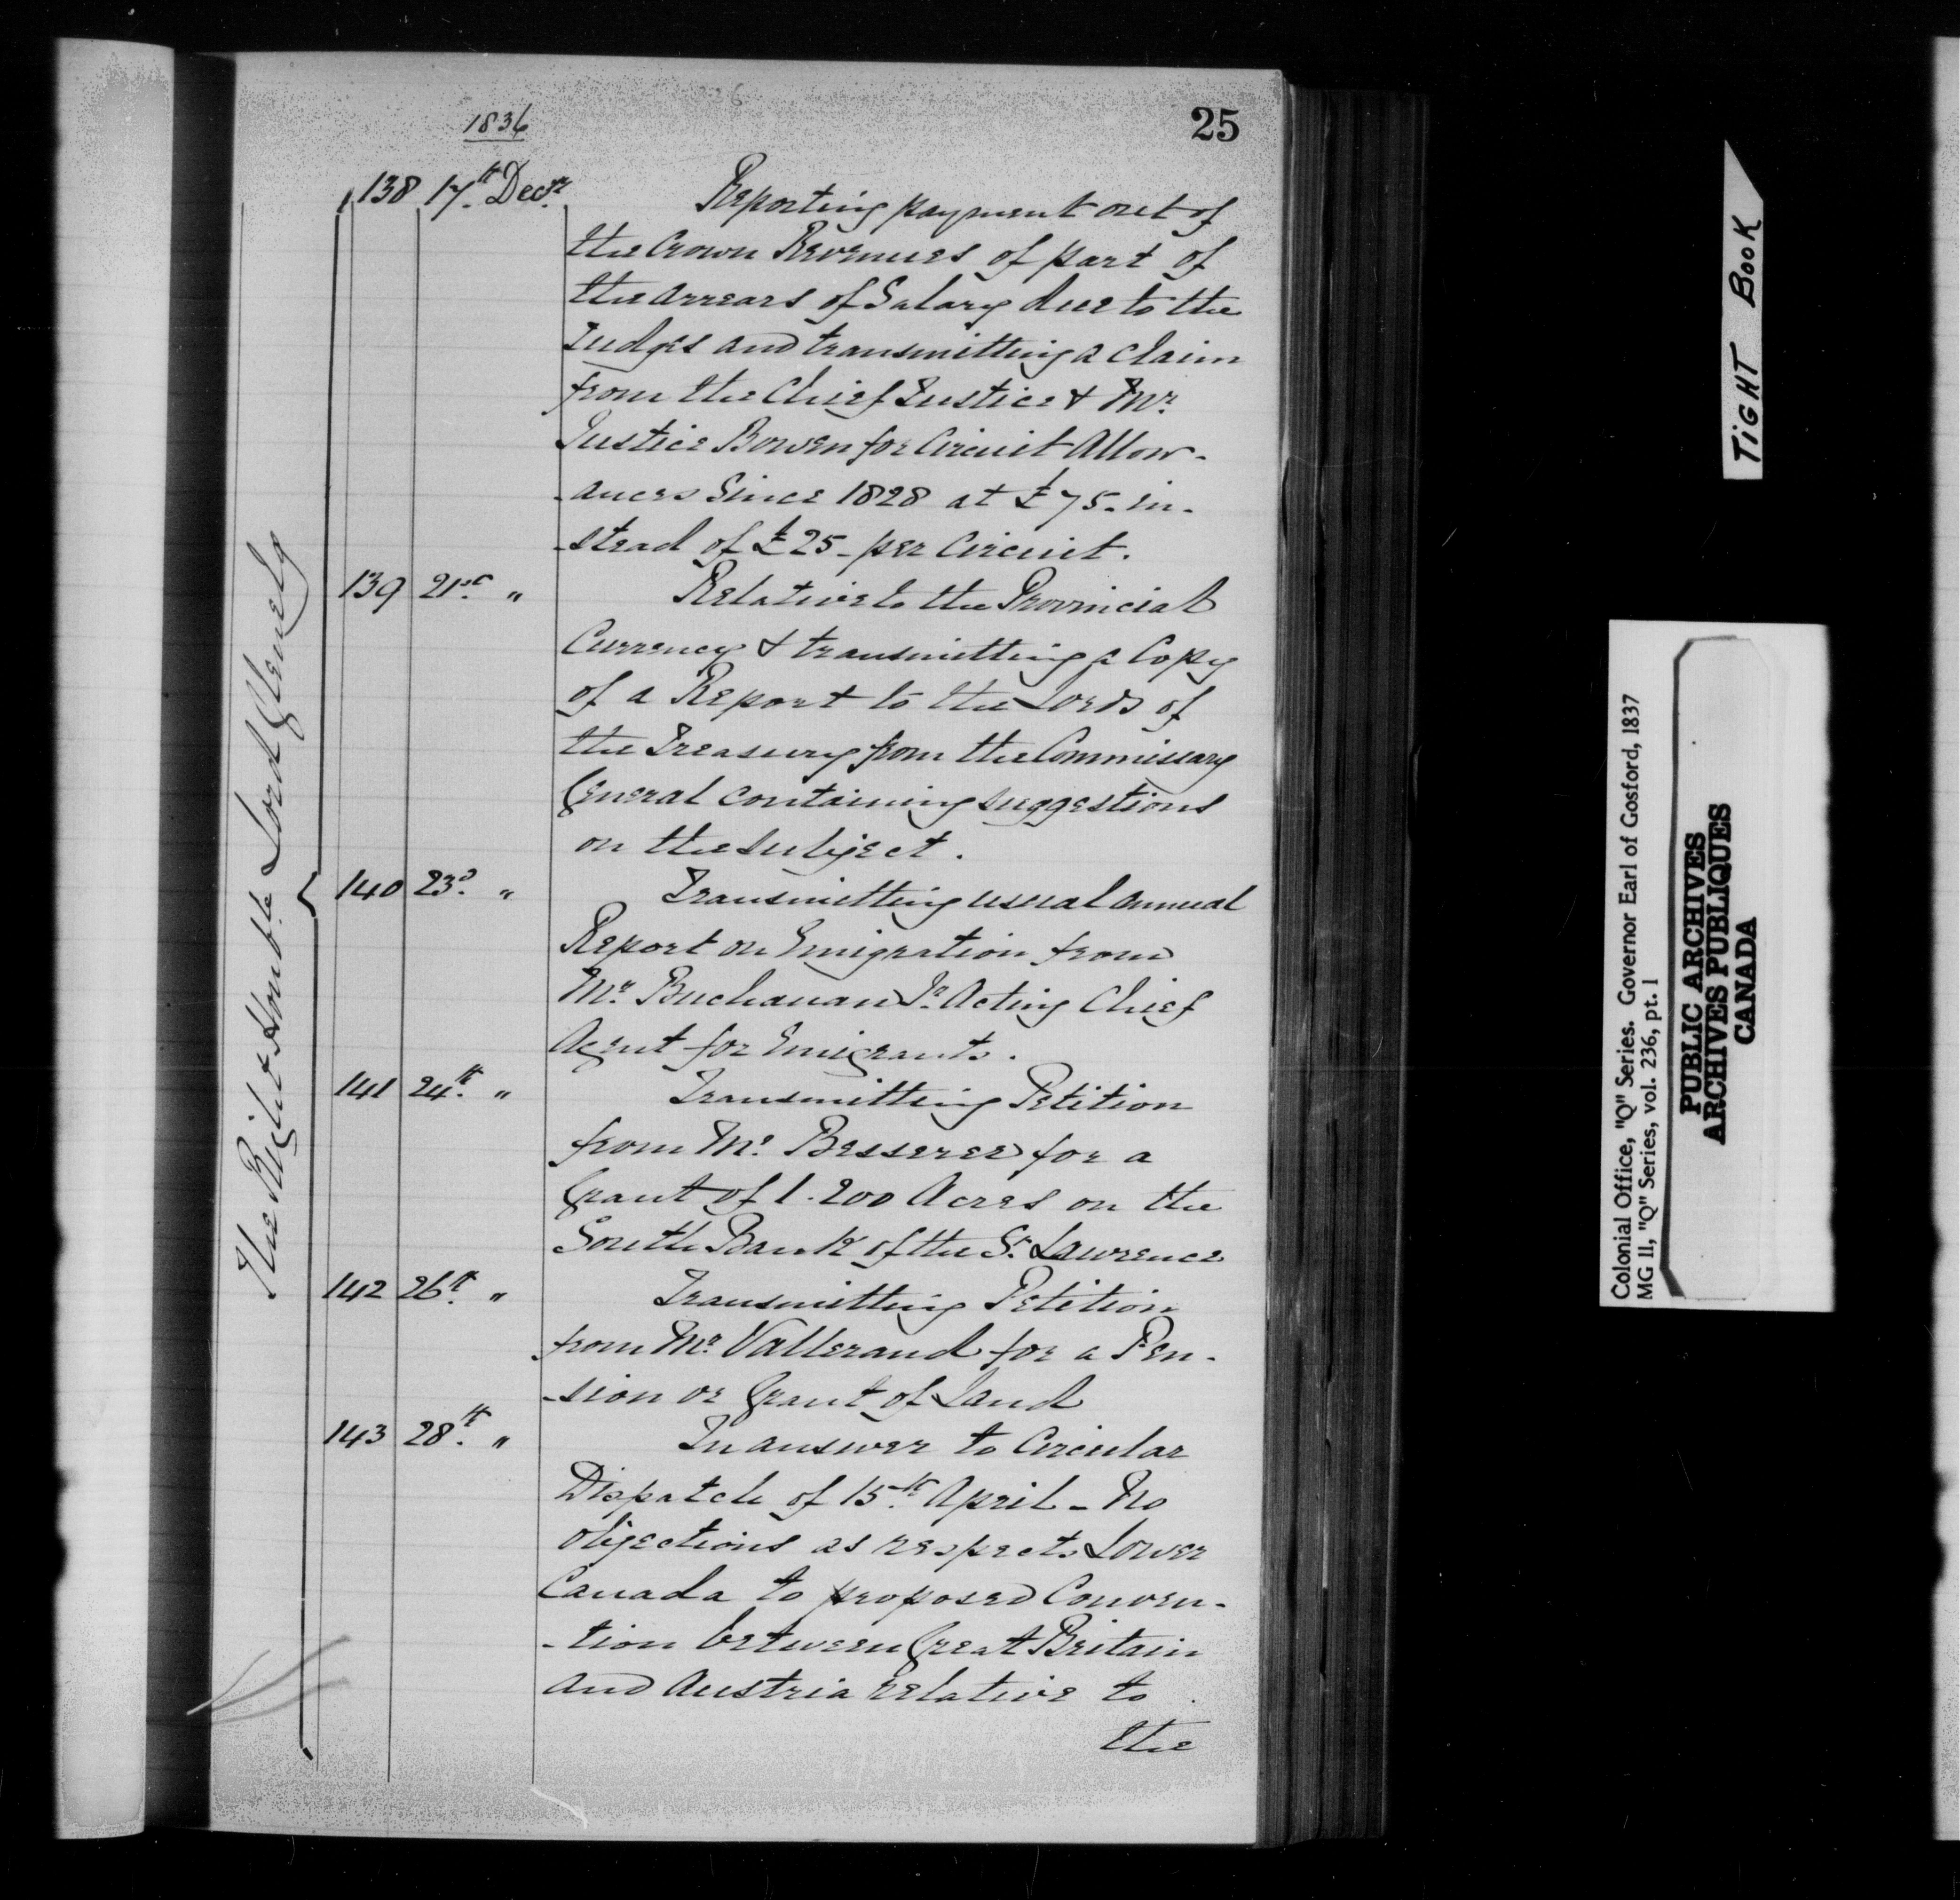 1836
25
The Right Honble. Lord Glenelg
138 17th. Decr. Reporting payment out of
the Crown Revenues of part of
the arrears of Salary due to the
Judges and transmitting a claim
from the Chief Justice & Mr.
Justice Bowen for Circuit Allow-
-ances Since 1828 at £75. in-
-stead of £25 - per Circuit.
139 21st. " Relative to the Provincial
Currency & transmitting a Copy
of a Report to the Lords of
the Treasury from the Commissary
General containing suggestions
on the subject.
140 23d. " Transmitting usual annual
Report on Emigration from
Mr. Buchanan Jr. Acting Chief
Agent for Emigrants.
141 24th. " Transmitting Petition
from Mr. Besserer for a
Grant of 1.200 Acres on the
South Bank of the St. Lawrence
142 26th. " Transmitting Petition
from Mr. Vallerand for a Pen-
-sion or Grant of Land
143 28th. " In answer to Circular
Dispatch of 15th. April - No
objections as respects Lower
Canada to proposed Conven-
-tion between Great Britain
and Austria relative to
the
TIGHT BOOK
Colonial Office, "Q" Series. Governor Earl of Gosford, 1837
MG 11, "Q" Series, vol. 236, pt. 1
PUBLIC ARCHIVES
ARCHIVES PUBLIQUES
CANADA